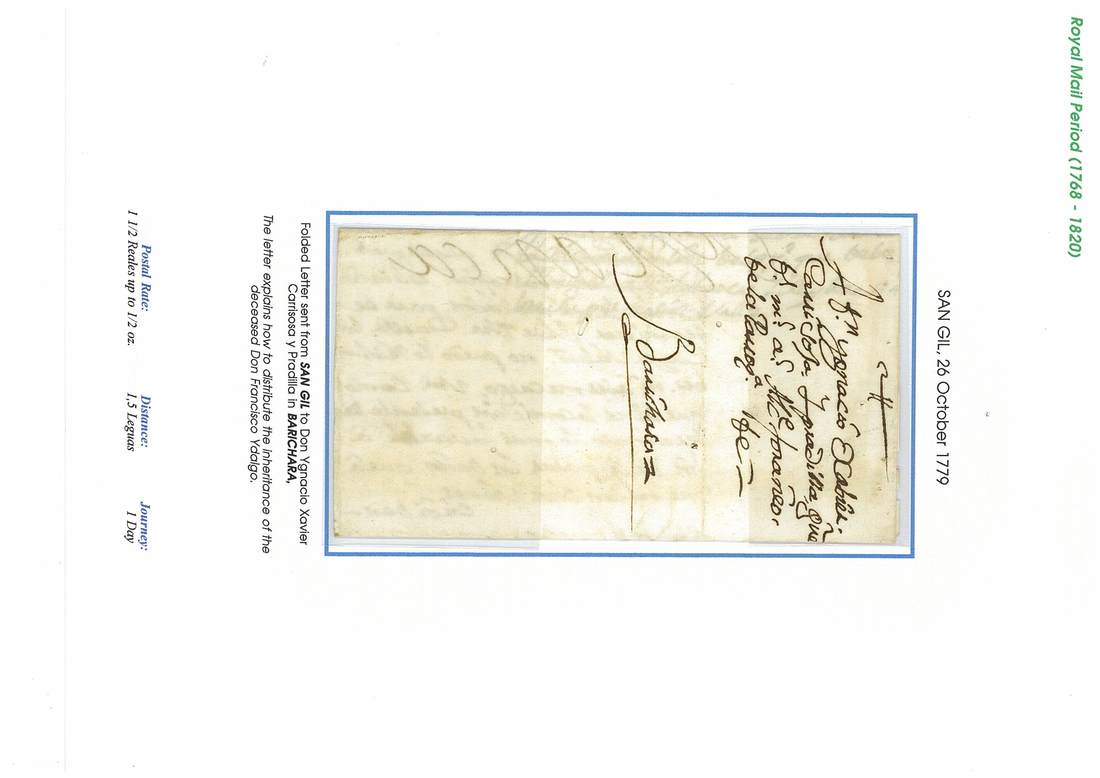 Royal Mail Period (1768 - 1820)
SAN GIL, 26 October 1779
A Dn. Ygnacio Exabier
Carrisosa, y pradilla, que
ms. as. Alce foraneo.
de la Parroqa. de
Barichara
Folded Letter sent from SAN GIL to Don Ygnacio Xavier
Carrisosa y Pradilla in BARICHARA,
The letter explains how to distribute the Inheritance of the
deceased Don Francisco Ydalgo.
Postal Rate: Distance: Journey:
1 1/2 Reales up to 1/2 oz. 1,5 Leguas 1 Day